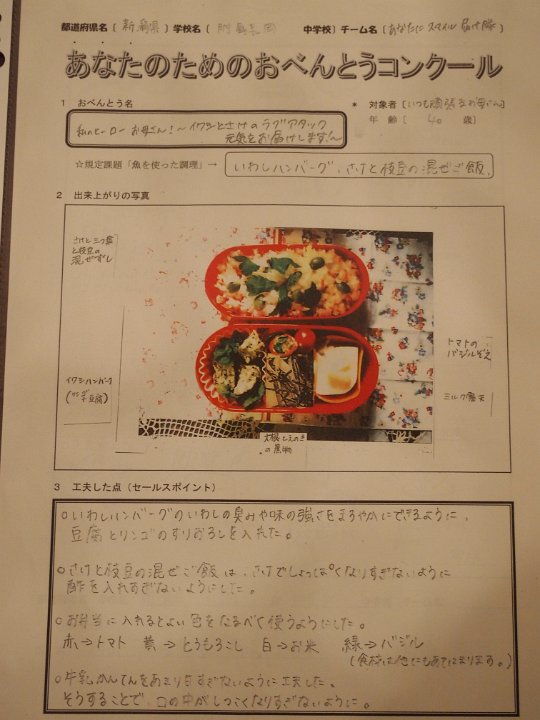 都道府県名〔新潟県〕学校名〔附属長岡 中学校〕チーム名〔あなたに スマイル 届け隊〕
あなたのためのおべんとうコンクール
1 おべんとう名
* 対象者〔いつも頑張るお母さん〕
年 齢〔 40 歳〕
私のヒーロー お母さん!～イワシとさけのラブアタック
元気をお届けします!～
☆規定課題「魚を使った調理」→
いわしハンバーグ、さけと枝豆の混ぜご飯、
2 出来上がりの写真
さけと三つ葉
と枝豆の
混ぜずし
イワシハンバーグ
豆腐)
トマトの
バジルぞえ
ミルク寒天
大根としめじ
の煮物
3 工夫した点（セールスポイント）
○いわしハンバーグのいわしの臭みや味の強さをまろやかにできるように、
豆腐とリンゴのすりおろしを入れた。
○さけと枝豆の混ぜご飯は、さけでしょっぱくなりすぎないように
酢を入れすぎないようにした。
○お弁当に入れるとよい色をなるべく使うようにした。
赤→トマト 黄→とうもろこし 白→お米 緑→バジル
(食材は他にもあてはまります。)
○牛乳かんてんをあまりすぎないように工夫した。
そうすることで、口の中がしつこくなりすぎないように。